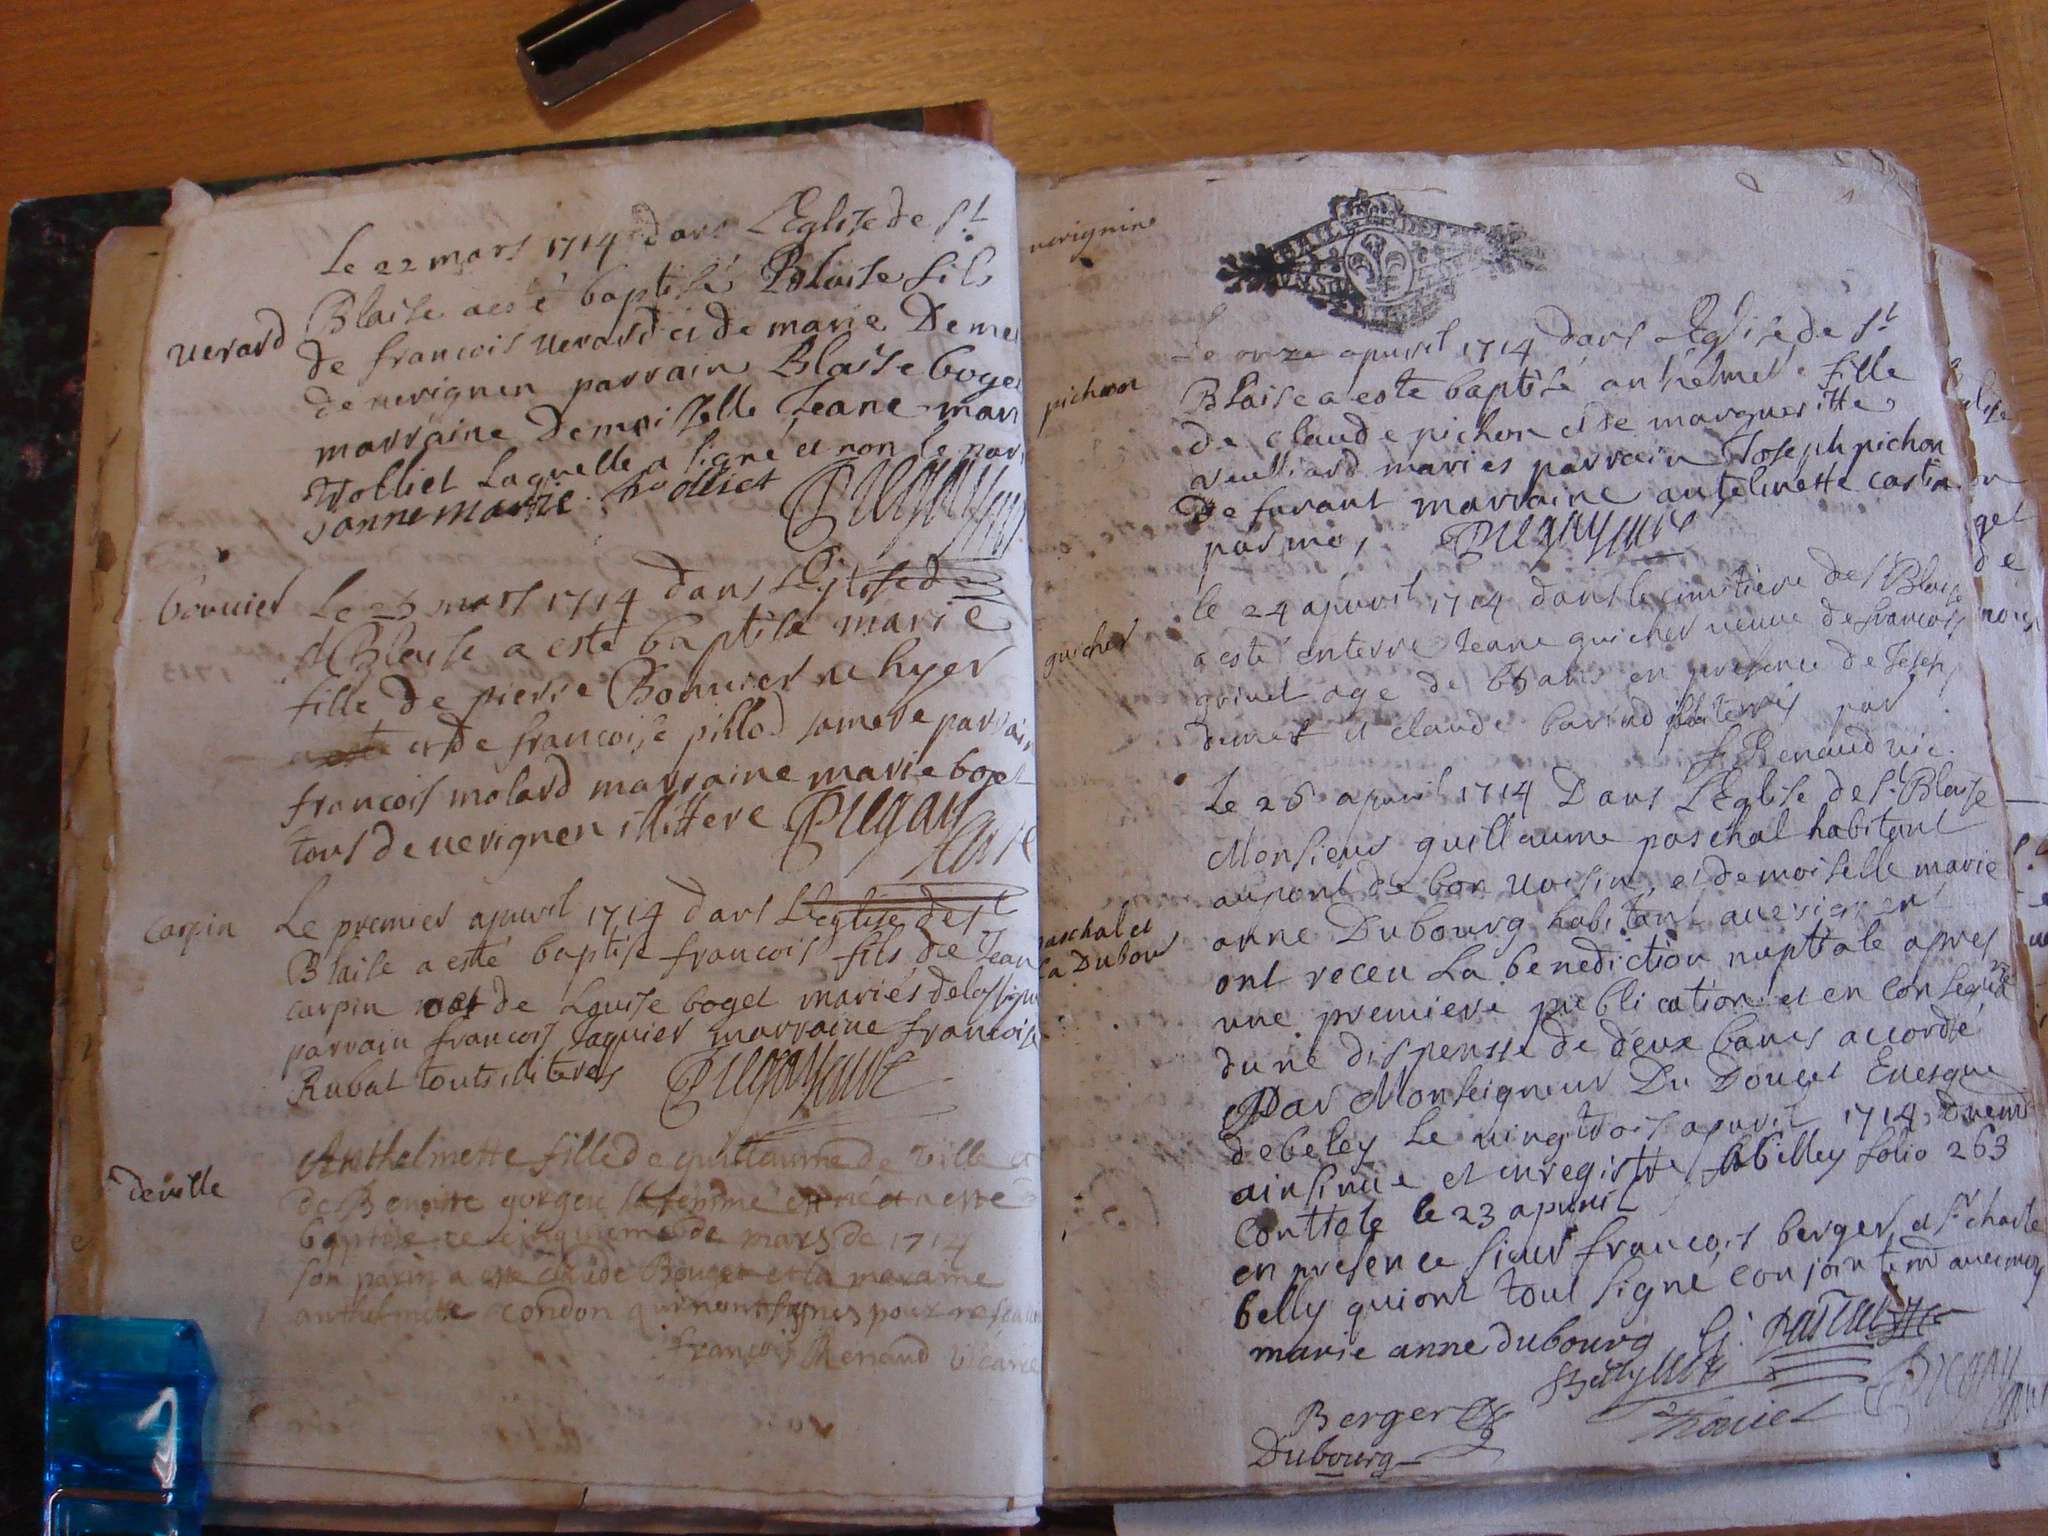 Le 22 mars 1714 dans L'Eglise de St
Blaise a esté baptisé Blaise fils
verard
de francois verard et de marie Deme
de verignin parrain Blaise boget
marraine Demoiselle Jeane mari
Trolliet Laquelle a signé et non le par
Janne marie trolliet
bonnier
Le 25 mars 1714 dans L'Eglise de
st Blaise a esté baptisé marie
fille de pierre Bonnier né hyer
et de francoise pillod sa mere parrain
francois molard marraine marie boget
tous de verignen illittere
carpin
Le premier apuril 1714 dans L'eglise de st
Blaise a esté baptisé francois fils de Jean
carpin et de Louise boget mariés
parrain francois Jaquier marraine francoise
Rubat touts illiteres
deville
Anthelmette fille de guillaume de ville et
de Benoitte gorgeu sa femme est né et a esté
baptisée ce cinquieme de mars de 1714
son parin a esté claude Bouget et la maraine
anthelmette condon qui n'ont signés pour ne scavoir
francois Renaud vicaire
verignine
Le onze apuril 1714 dans L'Eglise de St
pichon
Blaise a esté baptisé anthelmete fille
de claude pichon et de margueritte
veulliard mariés parrain Joseph pichon
de furant marraine antelmette castin
par moy
le 24 apuril 1714 dans le cimitiere de St Blaise
guicher
a esté enterré Jeane guicher veuve de francois
grinet age de 66 ans en presence de Joseph
demet et claude barind illiterés par
f. Renaud vic.
Le 26 apuril 1714 Dans L'Eglise de St Blaise
Monsieur guillaume paschal habitant
au pont de bon voisin, et demoiselle marie
paschal et
la Dubour
anne Dubourg habitant a verignen
ont receu La benediction nuptiale apres
une premiere publication et en consequen
d'une dispensse de deux bancs accordé
Par Monseigneur Du Douget Evesque
de beley Le vingt trois apuril 1714, duemt
ainsinue et enregistré a belley folio 263
conttole le 23 apuril
en presence sieur francois berger et sr charle
belly qui ont tout signé conjointemt avec moy
marie anne dubourg G. Paschal
Belly
Berger
Dubourg